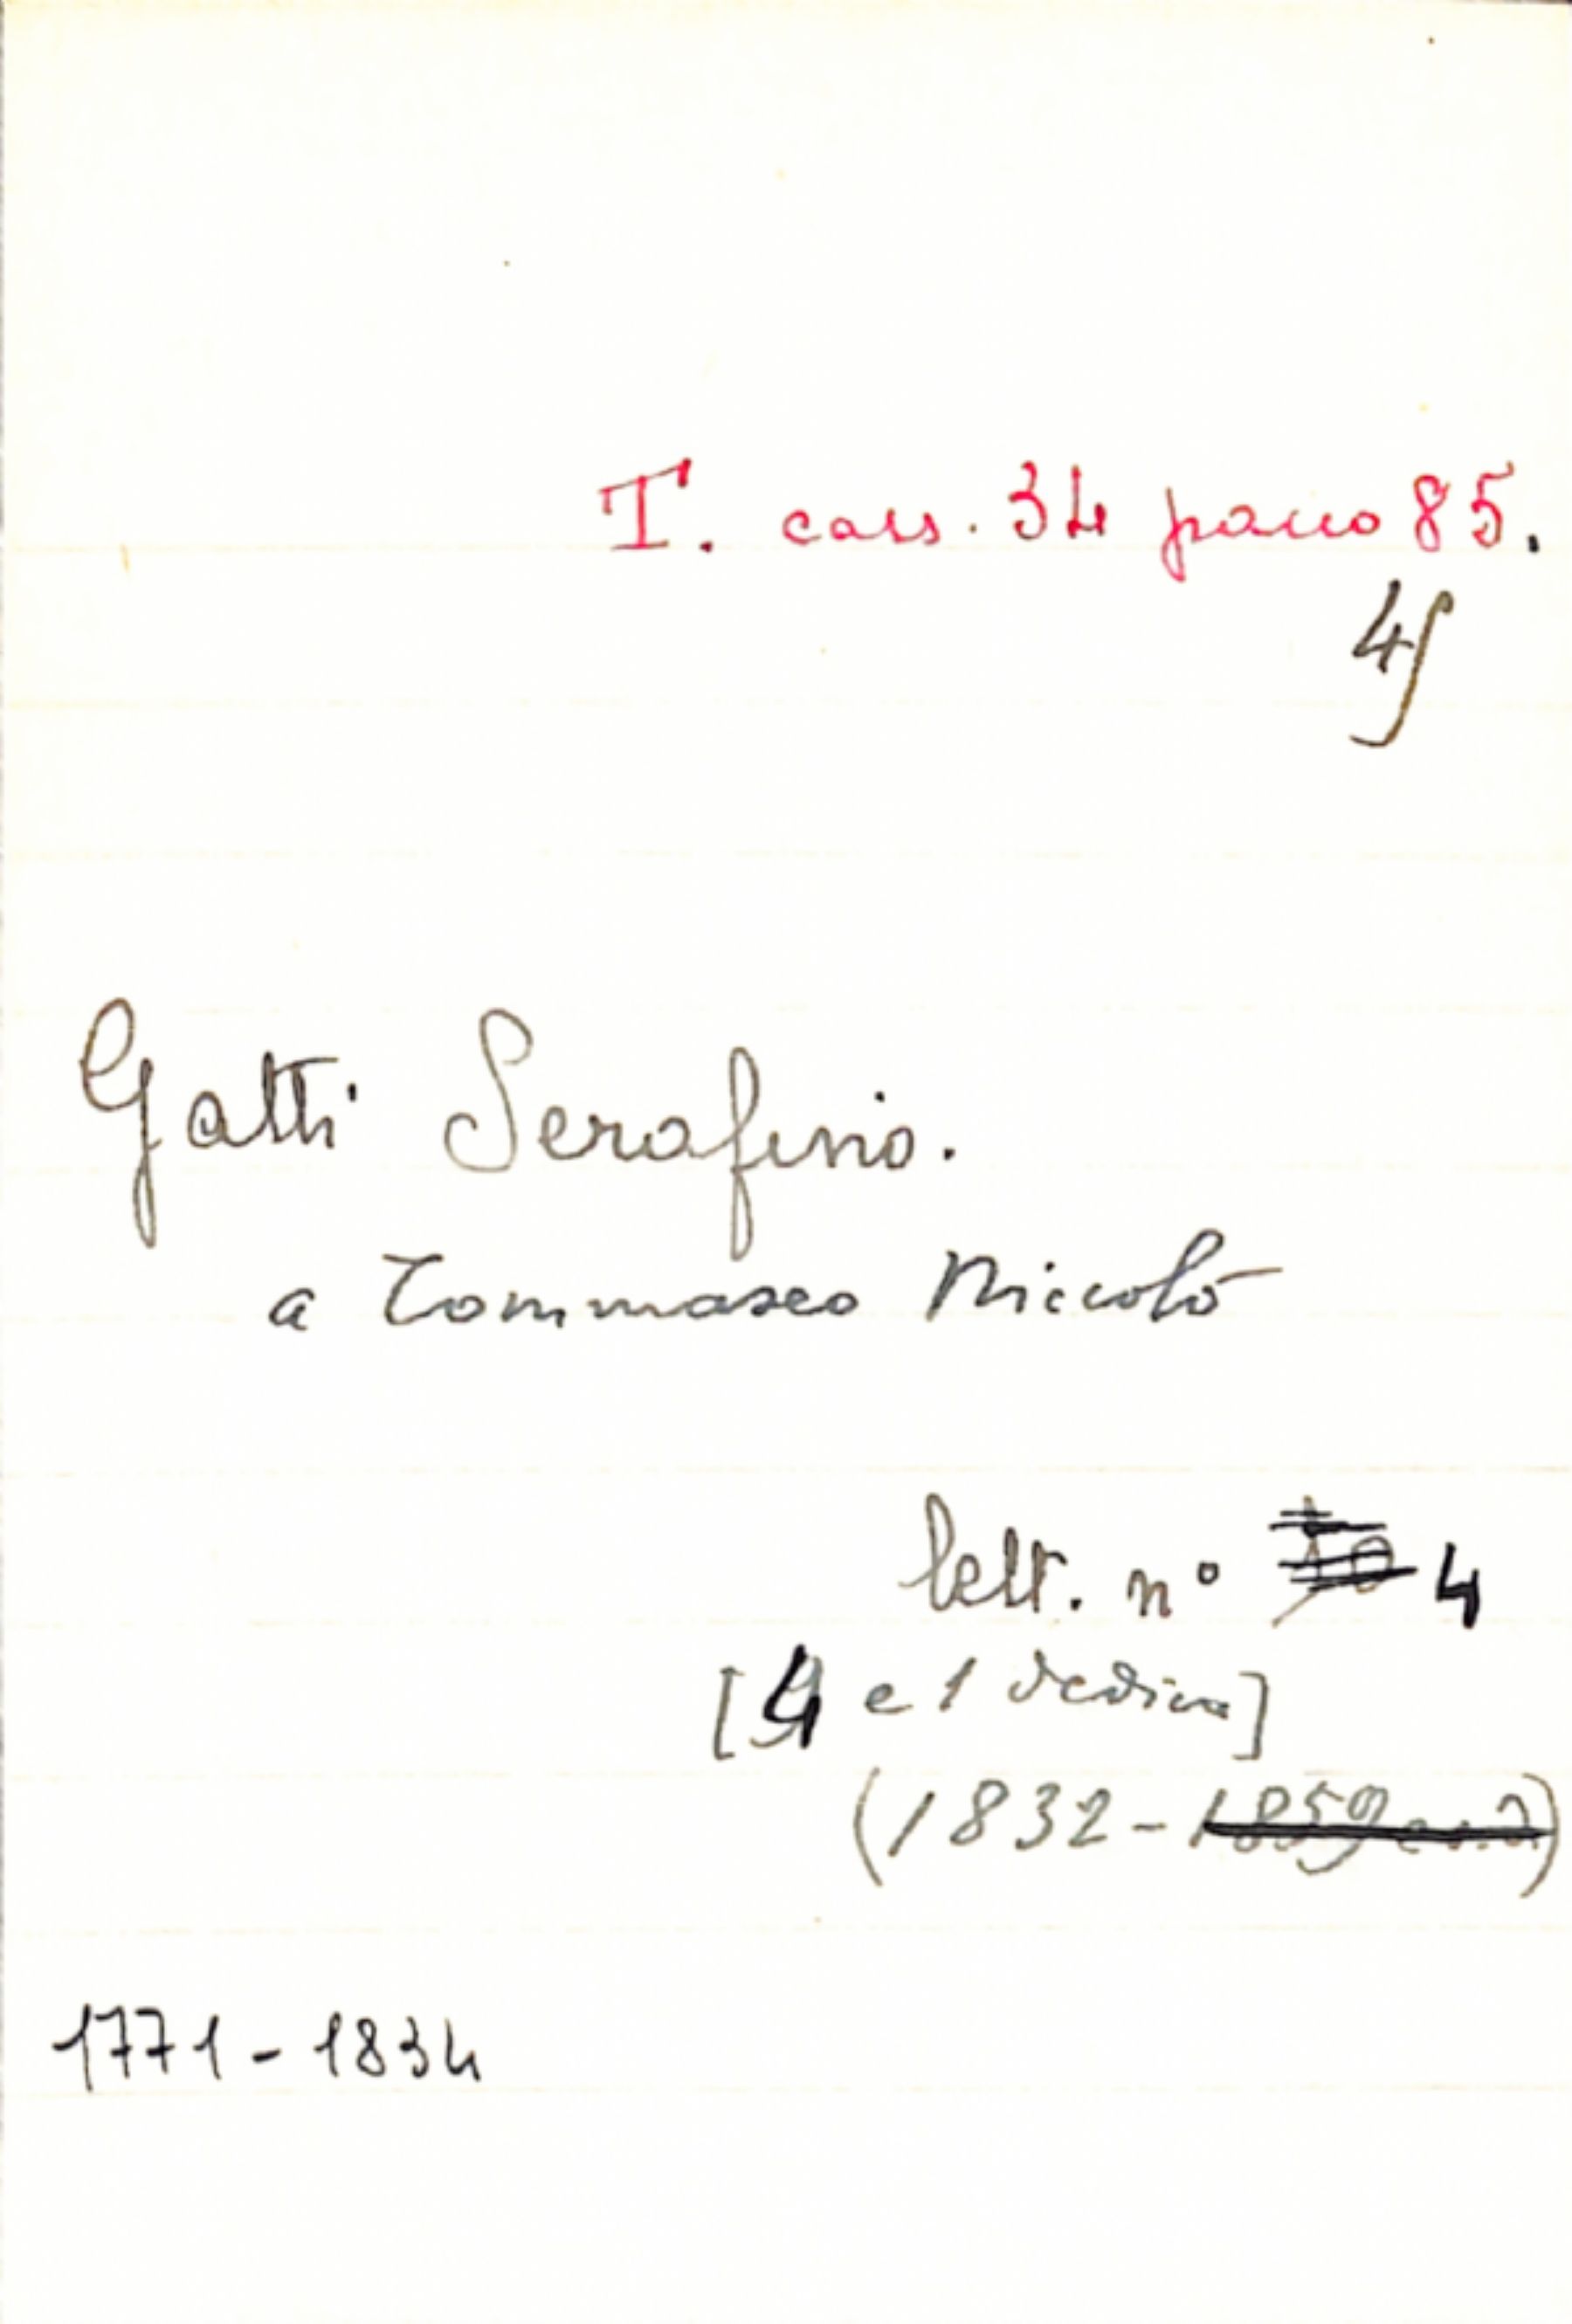 T. cass. 34 pacco 85.
4
Gatti Serafino.
a Tommaseo Niccolò
lett. n° 10 4
[4 e 1 dedica]
(1832-1859 e s.d.)
1771-1834